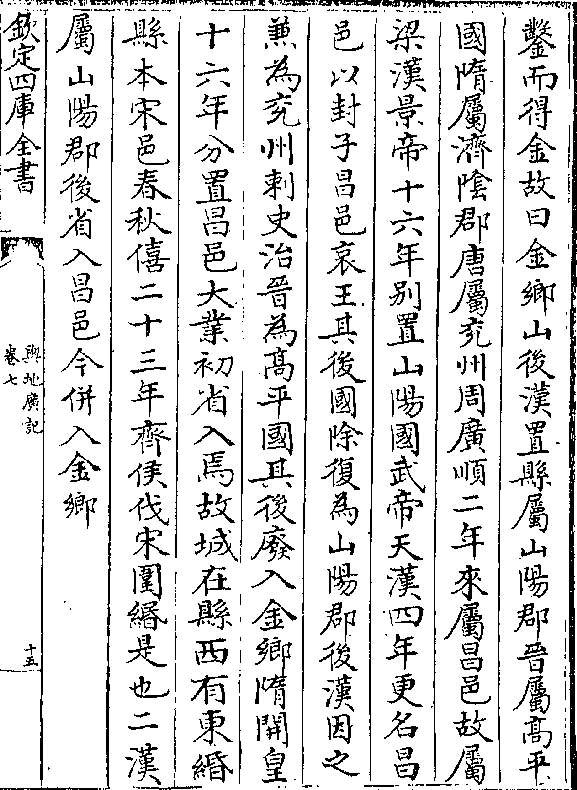 鑿而得金故曰金鄉山後漢置縣屬山陽郡晉屬髙平
國隋屬濟隂郡唐屬兖州周廣順二年來屬昌邑故屬
梁漢景帝十六年别置山陽國武帝天漢四年更名昌
邑以封子昌邑哀王其後國除復為山陽郡後漢因之
兼為兖州刺史治晉為髙平國其後廢入金鄉隋開皇
十六年分置昌邑大業初省入焉故城在縣西有東緡
縣本宋邑春秋僖二十三年齊侯伐宋圍緡是也二漢
屬山陽郡後省入昌邑今併入金鄉
欽定四庫全書
輿地廣記
卷七
十五